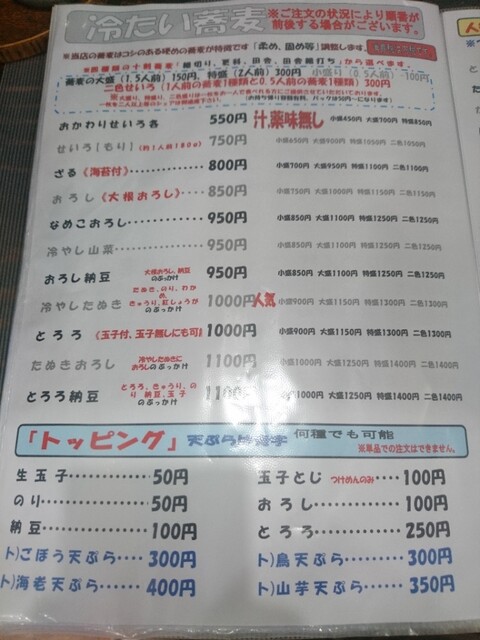 冷たい蕎麦 ※ご注文の状況により順番が
前後する場合がございます。
※当店の蕎麦はコシのある硬めの蕎麦が特徴です「柔め、固め等」調整します。
から選べます。
蕎麦の大盛(1.5人前)150円、特盛(2人前)300円 小盛り(0.5人前)-100円
二色せいろ(1人前の蕎麦1種類と0.5人前の蕎麦1種類)300円
おかわりせいろ各 550円 汁、薬味無し 小盛450円 大盛700円 特盛850円
せいろ[もり](約1人前180g) 750円 小盛650円 大盛900円 特盛1050円 二色1050円
ざる《海苔付》 800円 小盛700円 大盛950円 特盛1100円 二色1100円
おろし《大根おろし》 850円 小盛750円 大盛1000円 特盛1150円 二色1150円
なめこおろし 950円 小盛850円 大盛1100円 特盛1250円 二色1250円
冷やし山菜 950円 小盛850円 大盛1100円 特盛1250円 二色1250円
おろし納豆 大根おろし、納豆のぶっかけ 950円 小盛850円 大盛1100円 特盛1250円 二色1250円
冷やしたぬき たぬき、のり、わかめ、きゅうり、紅しょうがのぶっかけ 1000円 人気 小盛900円 大盛1150円 特盛1300円 二色1300円
とろろ《玉子付、玉子無しにも可》 1000円 小盛900円 大盛1150円 特盛1300円 二色1300円
たぬきおろし 冷やしたぬきにおろしのぶっかけ 1100円 小盛1000円 大盛1250円 特盛1400円 二色1400円
とろろ納豆 とろろ、きゅうり、のり、納豆、玉子のぶっかけ 小盛1000円 大盛1250円 特盛1400円 二色1400円
「トッピング」 何種でも可能
※単品での注文はできません。
生玉子 50円 玉子とじ つけめんのみ 100円
のり 50円 おろし 100円
納豆 100円 とろろ 250円
ト)ごぼう天ぷら 300円 ト)鳥天ぷら 300円
ト)海老天ぷら 400円 ト)山芋天ぷら 350円